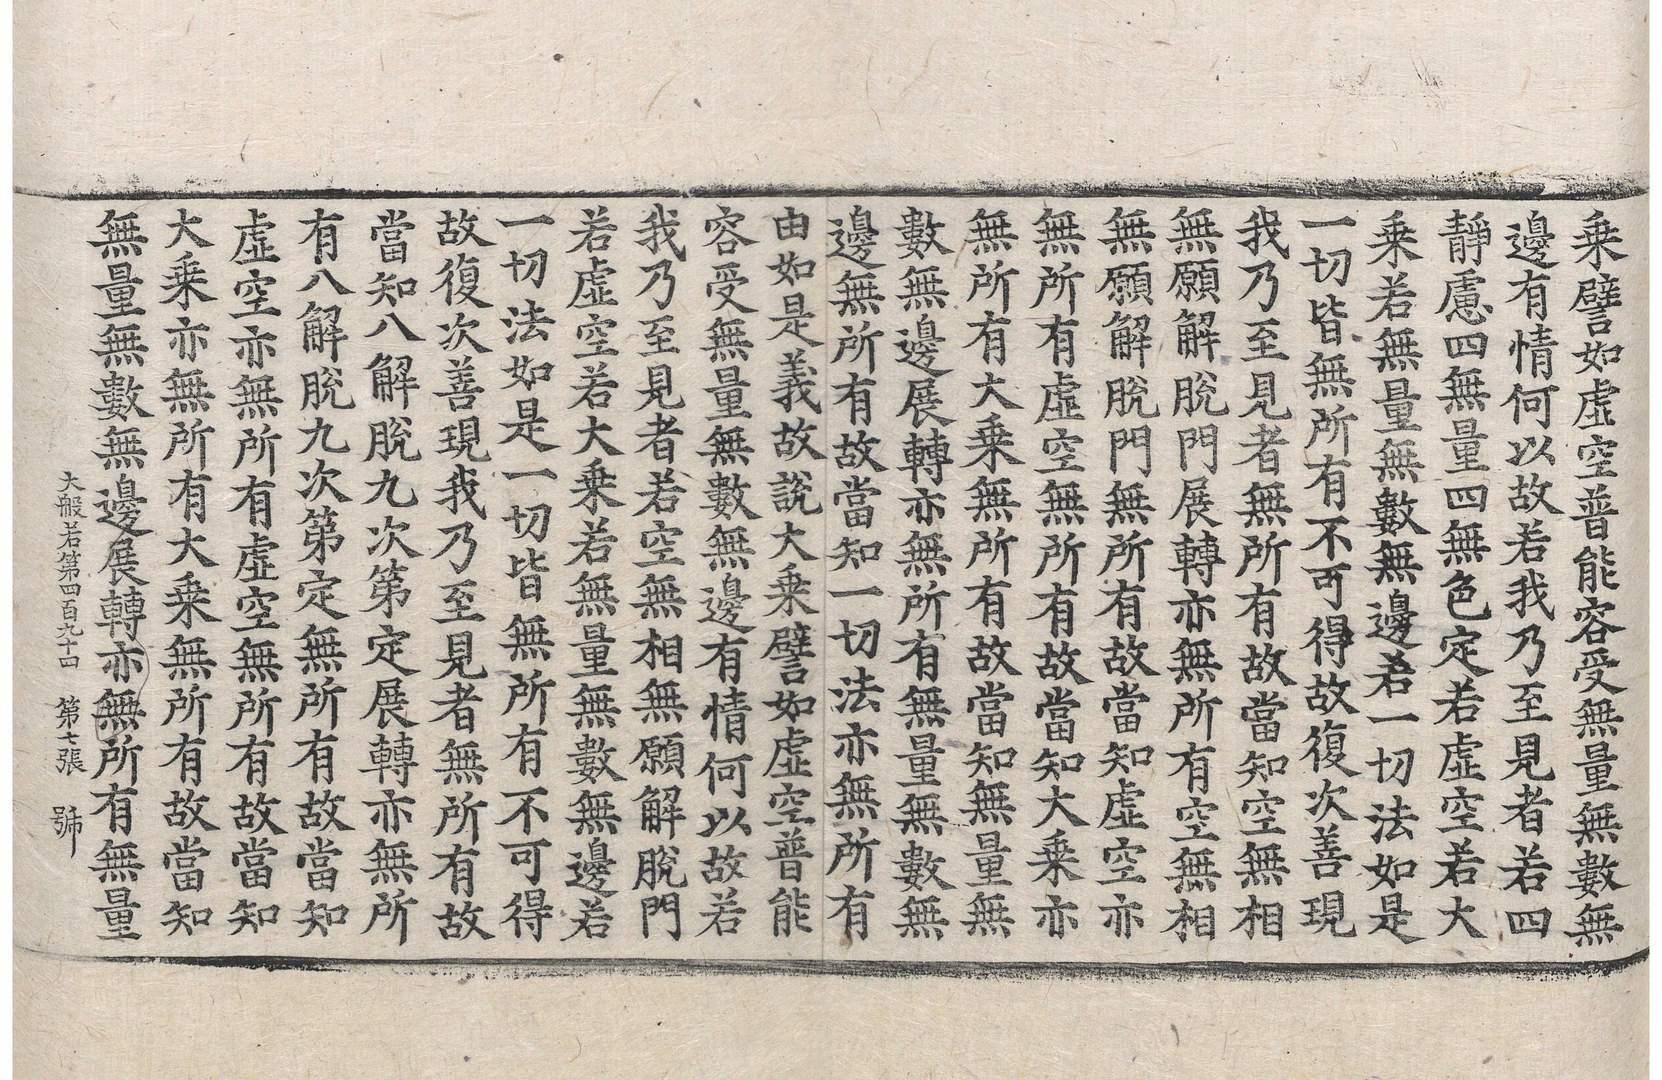 乗譬如虛空普能容受無量無數無
邊有情何以故若我乃至見者若四
靜慮四無量四無色定若虛空若大
乗若無量無數無邊若一切法如是
一切皆無所有不可得故復次善現
我乃至見者無所有故當知空無相
無願解脫門展轉亦無所有空無相
無願解脫門無所有故當知虛空亦
無所有虛空無所有故當知大乗亦
無所有大乗無所有故當知無量無
數無邊展轉亦無所有無量無數無
邊無所有故當知一切法亦無所有
由如是義故說大乗譬如虛空普能
容受無量無數無邊有情何以故若
我乃至見者若空無相無願解脫門
若虛空若大乗若無量無數無邊若
一切法如是一切皆無所有不可得
故復次善現我乃至見者無所有故
當知八解脫九次第定展轉亦無所
有八解脫九次第定無所有故當知
虛空亦無所有虛空無所有故當知
大乗亦無所有大乗無所有故當知
無量無數無邊展轉亦無所有無量
大般若第四百九十四 第七張 號